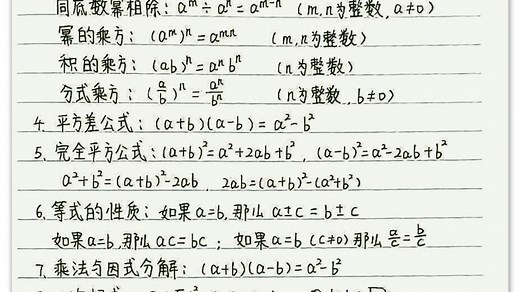 同底数幂相除：aᵐ÷aⁿ=aᵐ⁻ⁿ （m,n为整数，a≠0）
幂的乘方：(aᵐ)ⁿ=aᵐⁿ （m,n为整数）
积的乘方：(ab)ⁿ=aⁿbⁿ （n为整数）
分式乘方：(a/b)ⁿ=aⁿ/bⁿ （n为整数，b≠0）
4. 平方差公式：(a+b)(a-b)=a²-b²
5. 完全平方公式：(a+b)²=a²+2ab+b²，(a-b)²=a²-2ab+b²
a²+b²=(a+b)²-2ab，2ab=(a+b)²-(a²+b²)
6. 等式的性质：如果a=b,那么a±c=b±c
如果a=b,那么ac=bc；如果a=b(c≠0)那么a/c=b/c
7. 乘法与因式分解：(a+b)(a-b)=a²-b²